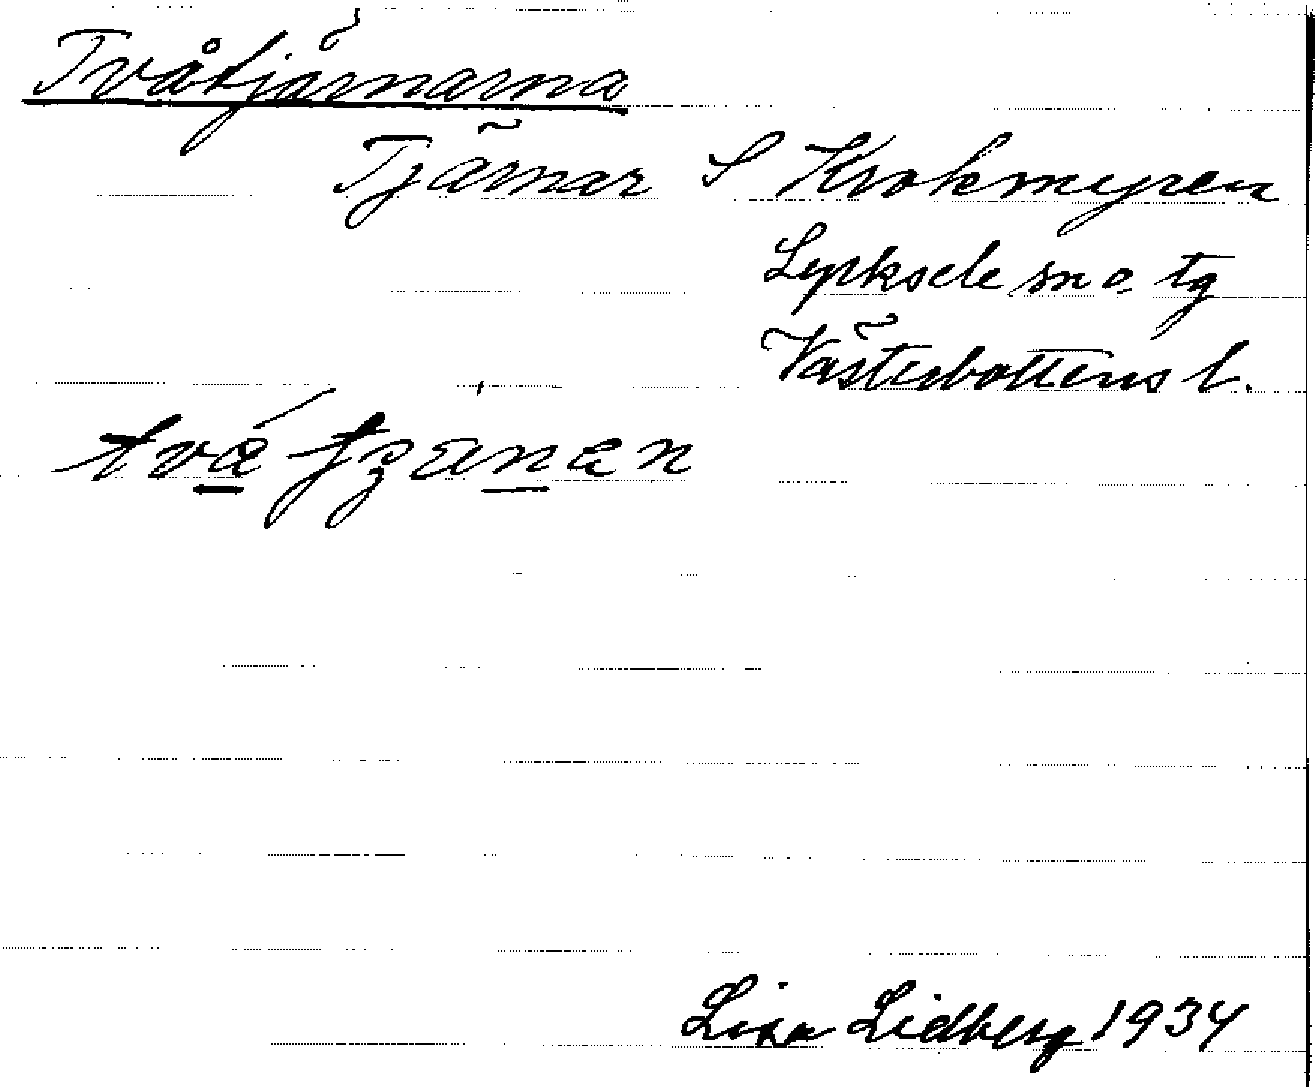 Tvåtjärnarna
Tjärnar S Krokmyren
Lycksele sn o. tg
Västerbottens l.
Lisa Lidberg 1934